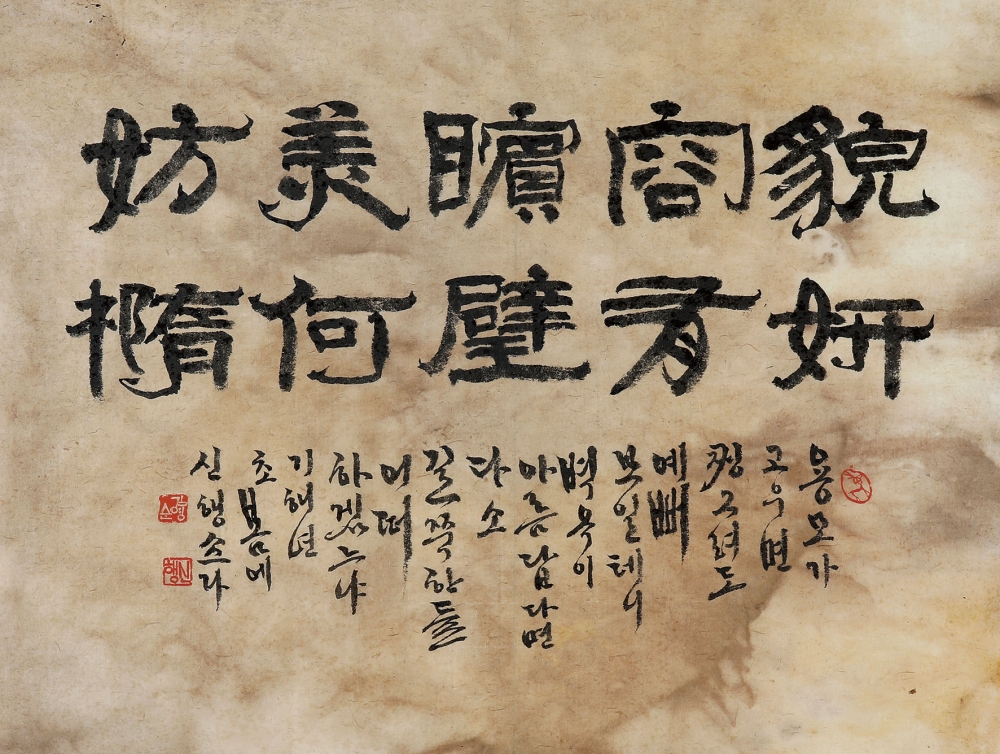 貌妍
容有
矉璧
美何
妨橢
용모가
고우면
찡그려도
예뻐
보일테니
벽옥이
아름답다면
다소
길쭉한들
어떠
하겠느냐
기해년
초봄에
신행쓰다
신행